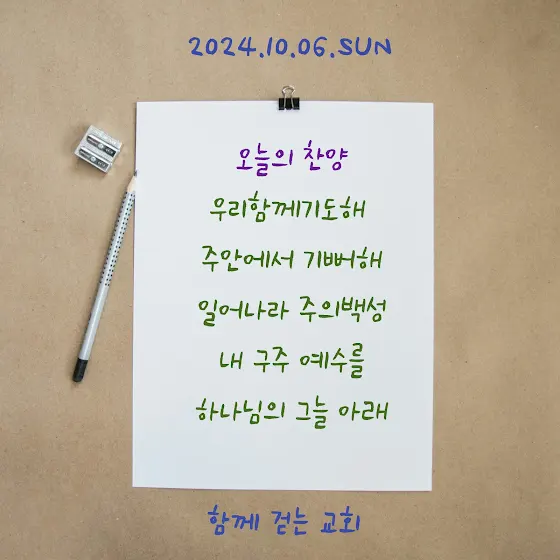 2024.10.06.SUN
오늘의 찬양
우리함께기도해
주안에서 기뻐해
일어나라 주의백성
내 구주 예수를
하나님의 그늘 아래
함께 걷는 교회